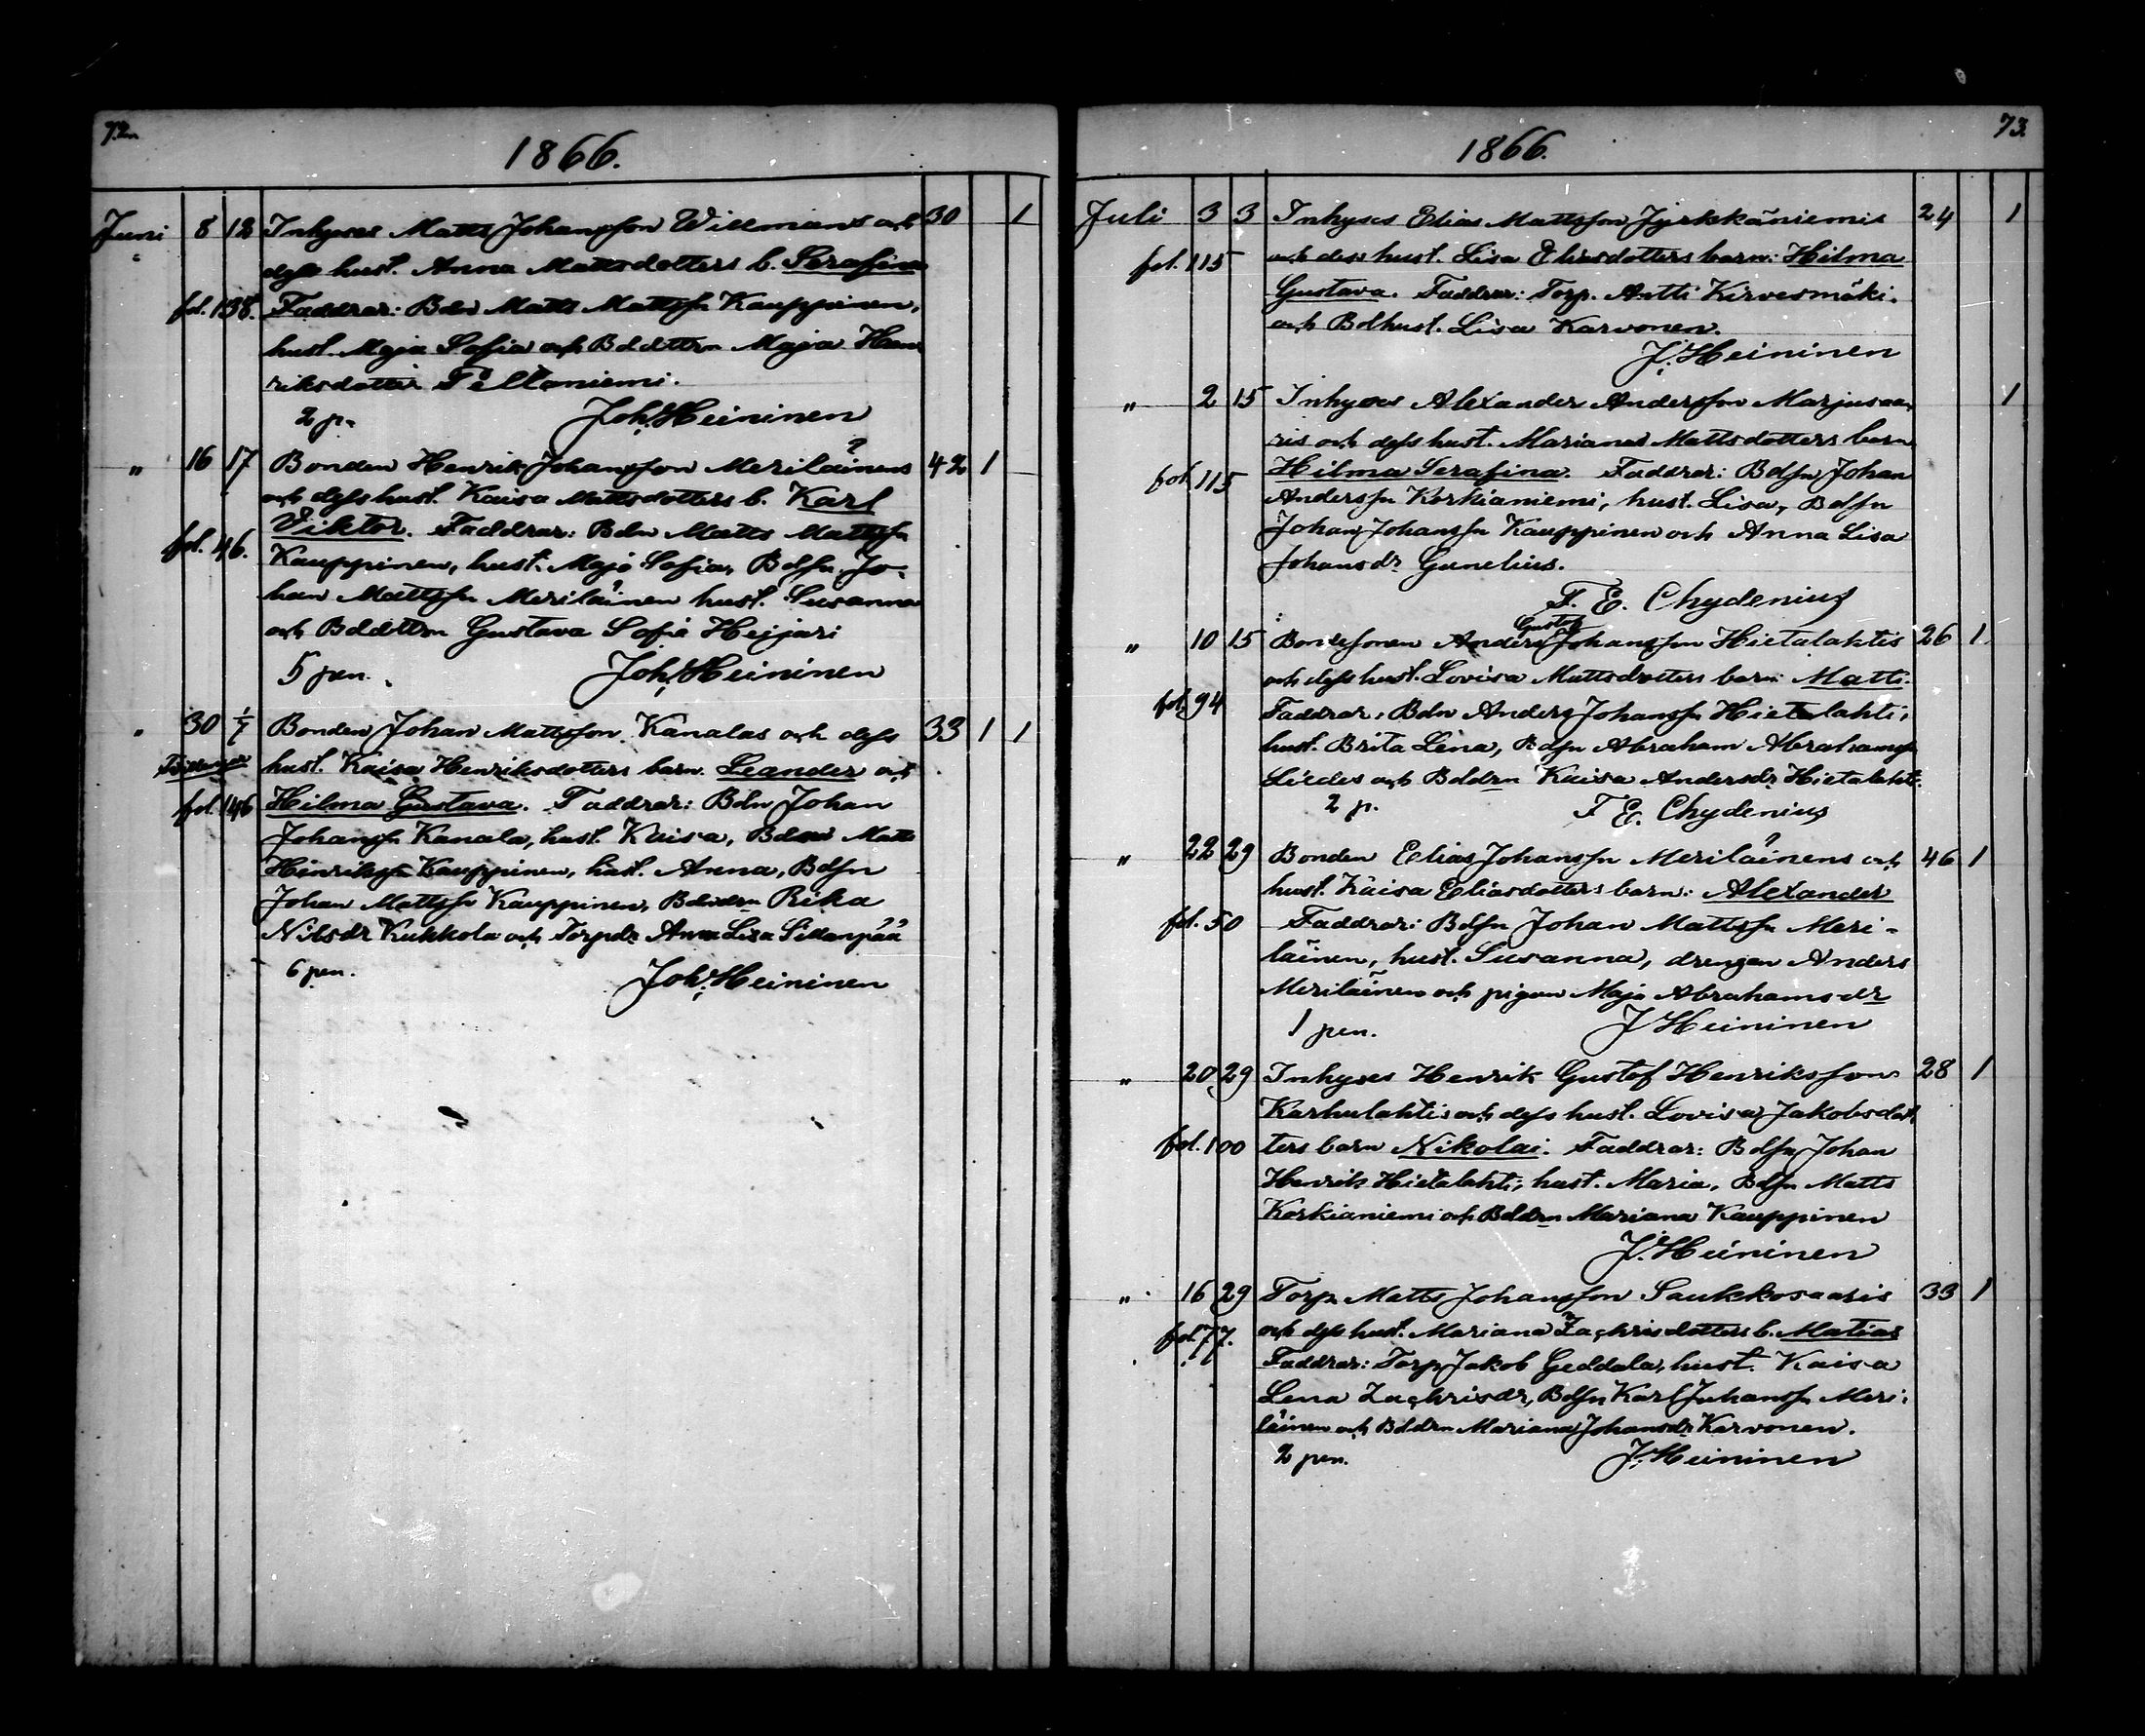 72
1866.
Juni 8 12 Inhyses Matts Johansson Willmans och 30 1
dess hust. Anna Mattsdotters b. Serafina
fol. 138. Faddrar: Bdn Matts Mattssn Kauppinen,
hust. Maja Sofia och Bddttrn Maja Hen
riksdotter Peltoniemi.
2 p. Joh. Heininen
" 16 17 Bonden Henrik Johansson Meriläinens 42 1
och dess hust. Kaisa Mattsdotters b. Karl
Viktor. Faddrar: Bdn Matts Mattssn
fol. 46. Kauppinen, hust. Maja Sofia, Bdsn Jo-
han Mattssn Meriläinen hust. Susanna
och Bddttrn Gustava Sofia Heijari
5 pen. Joh. Heininen
" 30 1/7 Bonden Johan Mattsson Kanalas och dess 33 1 1
Tvillingar hust. Kaisa Henriksdotters barn Leander och
fol. 146 Hilma Gustava. Faddrar: Bdn Johan
Johanssn Kanala, hust. Kaisa, Bdn Matts
Henrikssn Kauppinen, hust. Anna, Bdsn
Johan Mattssn Kauppinen, Bddrn Rika
Nilsdr Kukkola och Torpdr Anna Lisa Sillanpää
6 pen. Joh. Heininen
73.
1866.
Juli 3 3 Inhyses Elias Mattsson Jyrkkäniemis 24 1
fol. 115 och dess hust. Lisa Eliasdotters barn: Hilma
Gustava. Faddrar: Torp. Antti Kirvesmäki.
och Bdhust. Lisa Karvonen.
J. Heininen
" 2 15 Inhyses Alexander Andersson Marjusaa- 1
ris och dess hust. Mariana Mattsdotters barn
fol. 115 Hilma Serafina. Faddrar: Bdsn Johan
Anderssn Korkianiemi, hust. Lisa, Bdsn
Johan Johanssn Kauppinen och Anna Lisa
Johansdr Gunelius.
F. E. Chydenius
Gustaf
" 10 15 Bondesonen Anders Johansson Hietalahtis 26 1
och dess hust. Lovisa Mattsdotters barn Matts.
fol. 94 Faddrar: Bdn Anders Johanssn Hietalahti,
hust. Brita Lena, Bdsn Abraham Abrahamssn
Liedes och Bddrn Kaisa Andersdr Hietalahti.
2 p. F E. Chydenius
" 22 29 Bonden Elias Johanssn Meriläinens och 46 1
hust. Kaisa Eliasdotters barn: Alexander
fol. 50 Faddrar: Bdsn Johan Mattssn Meri-
läinen, hust. Susanna, drengen Anders
Meriläinen och pigan Maja Abrahamsdr
1 pen. J Heininen
" 20 29 Inhyses Henrik Gustaf Henriksson 28 1
Karhulahtis och dess hust. Lovisa Jakobsdot
fol. 100 ters barn Nikolai. Faddrar: Bdsn Johan
Henrik Hietalahti, hust. Maria, Bdsn Matts
Korkianiemi och Bddrn Mariana Kauppinen
J. Heininen
" 16 29 Torp. Matts Johansson Saukkosaaris 33 1
fol. 77. och dess hust. Mariana Zachrisdotters b. Matias
Faddrar: Torp Jakob Geddala, hust. Kaisa
Lena Zachrisdr, Bdsn Karl Juhanssn Meri-
läinen och Bddrn Mariana Johansdr Karvonen.
2 pen. J. Heininen